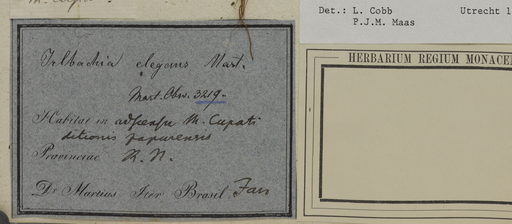 Det.: L. Cobb Utrecht 1
P.J.M. Maas
HERBARIUM REGIUM MONACE
Irlbachia elegans Mart.
Mart. Obs. 3219.
Habitat in adscensu M. Cupati
ditionis japurensis
Provinciae R. N.
Dr Martius Iter Brasil Jan